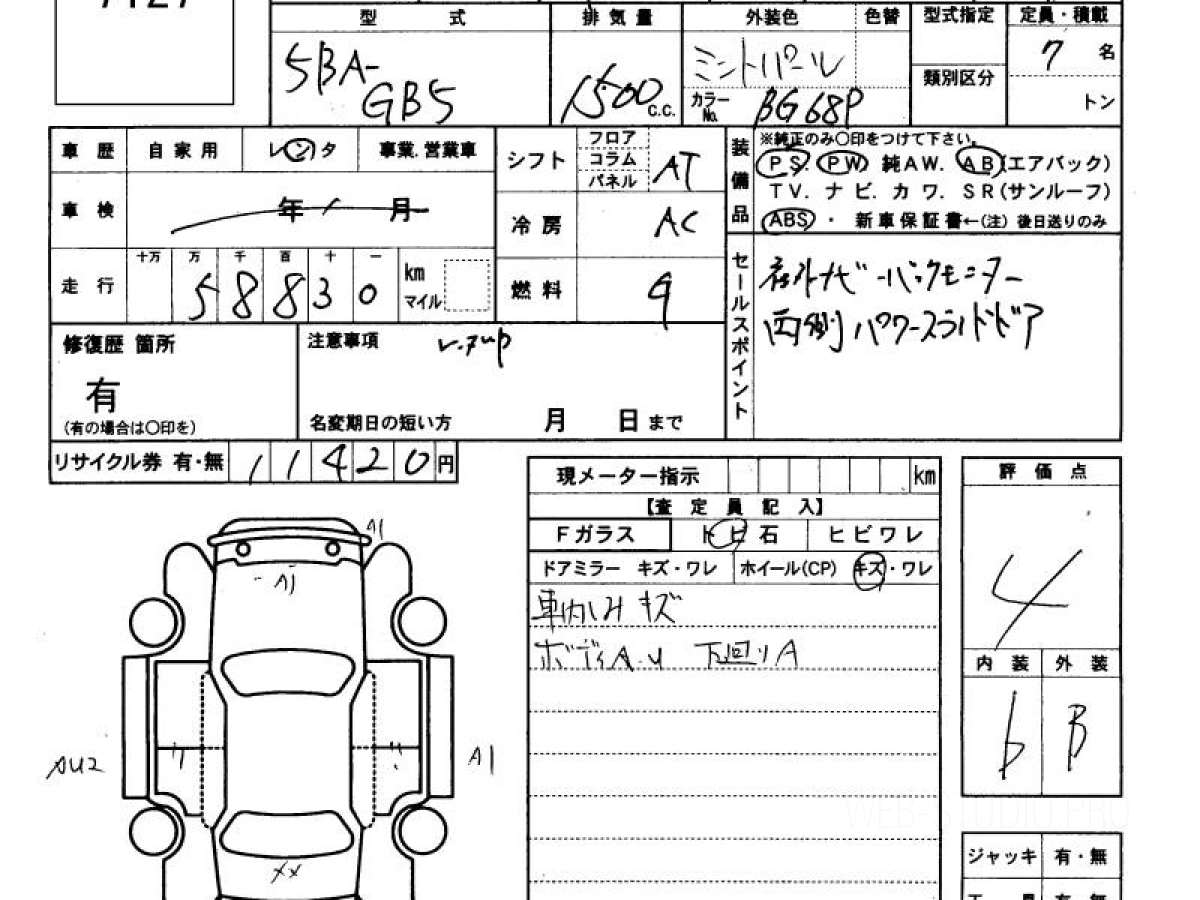 7127
型式 排気量 外装色 色替 型式指定 定員・積載
5BA-
GB5
1500 c.c.
ミントパール
カラーNo. BG68P
類別区分
7 名
トン
車歴 自家用 レンタ 事業.営業車
シフト フロア コラム パネル AT
装備品 ※純正のみ〇印をつけて下さい。
PS. PW. 純AW. AB(エアバック)
TV. ナビ. カワ. SR(サンルーフ)
ABS ・ 新車保証書←(注) 後日送りのみ
車検 年 月
冷房 AC
走行 十万 万 千 百 十 一
58830 km マイル
燃料
セールスポイント
社外ナビ-バックモニター
両側パワースライドドア
修復歴 箇所
有
(有の場合は〇印を)
注意事項 レ.アup
名変期日の短い方 月 日 まで
リサイクル券 有・無 11420円
現メーター指示 km
【査定員記入】
Fガラス トビ石 ヒビワレ
ドアミラー キズ・ワレ ホイール(CP) キズ・ワレ
車内しみキズ
ボディA.U 下回りA
評価点
4
内装 外装
b B
A1
A1
AU2
A1
XX
ジャッキ 有・無
工具 有・無
WEB-STUDIO PRO